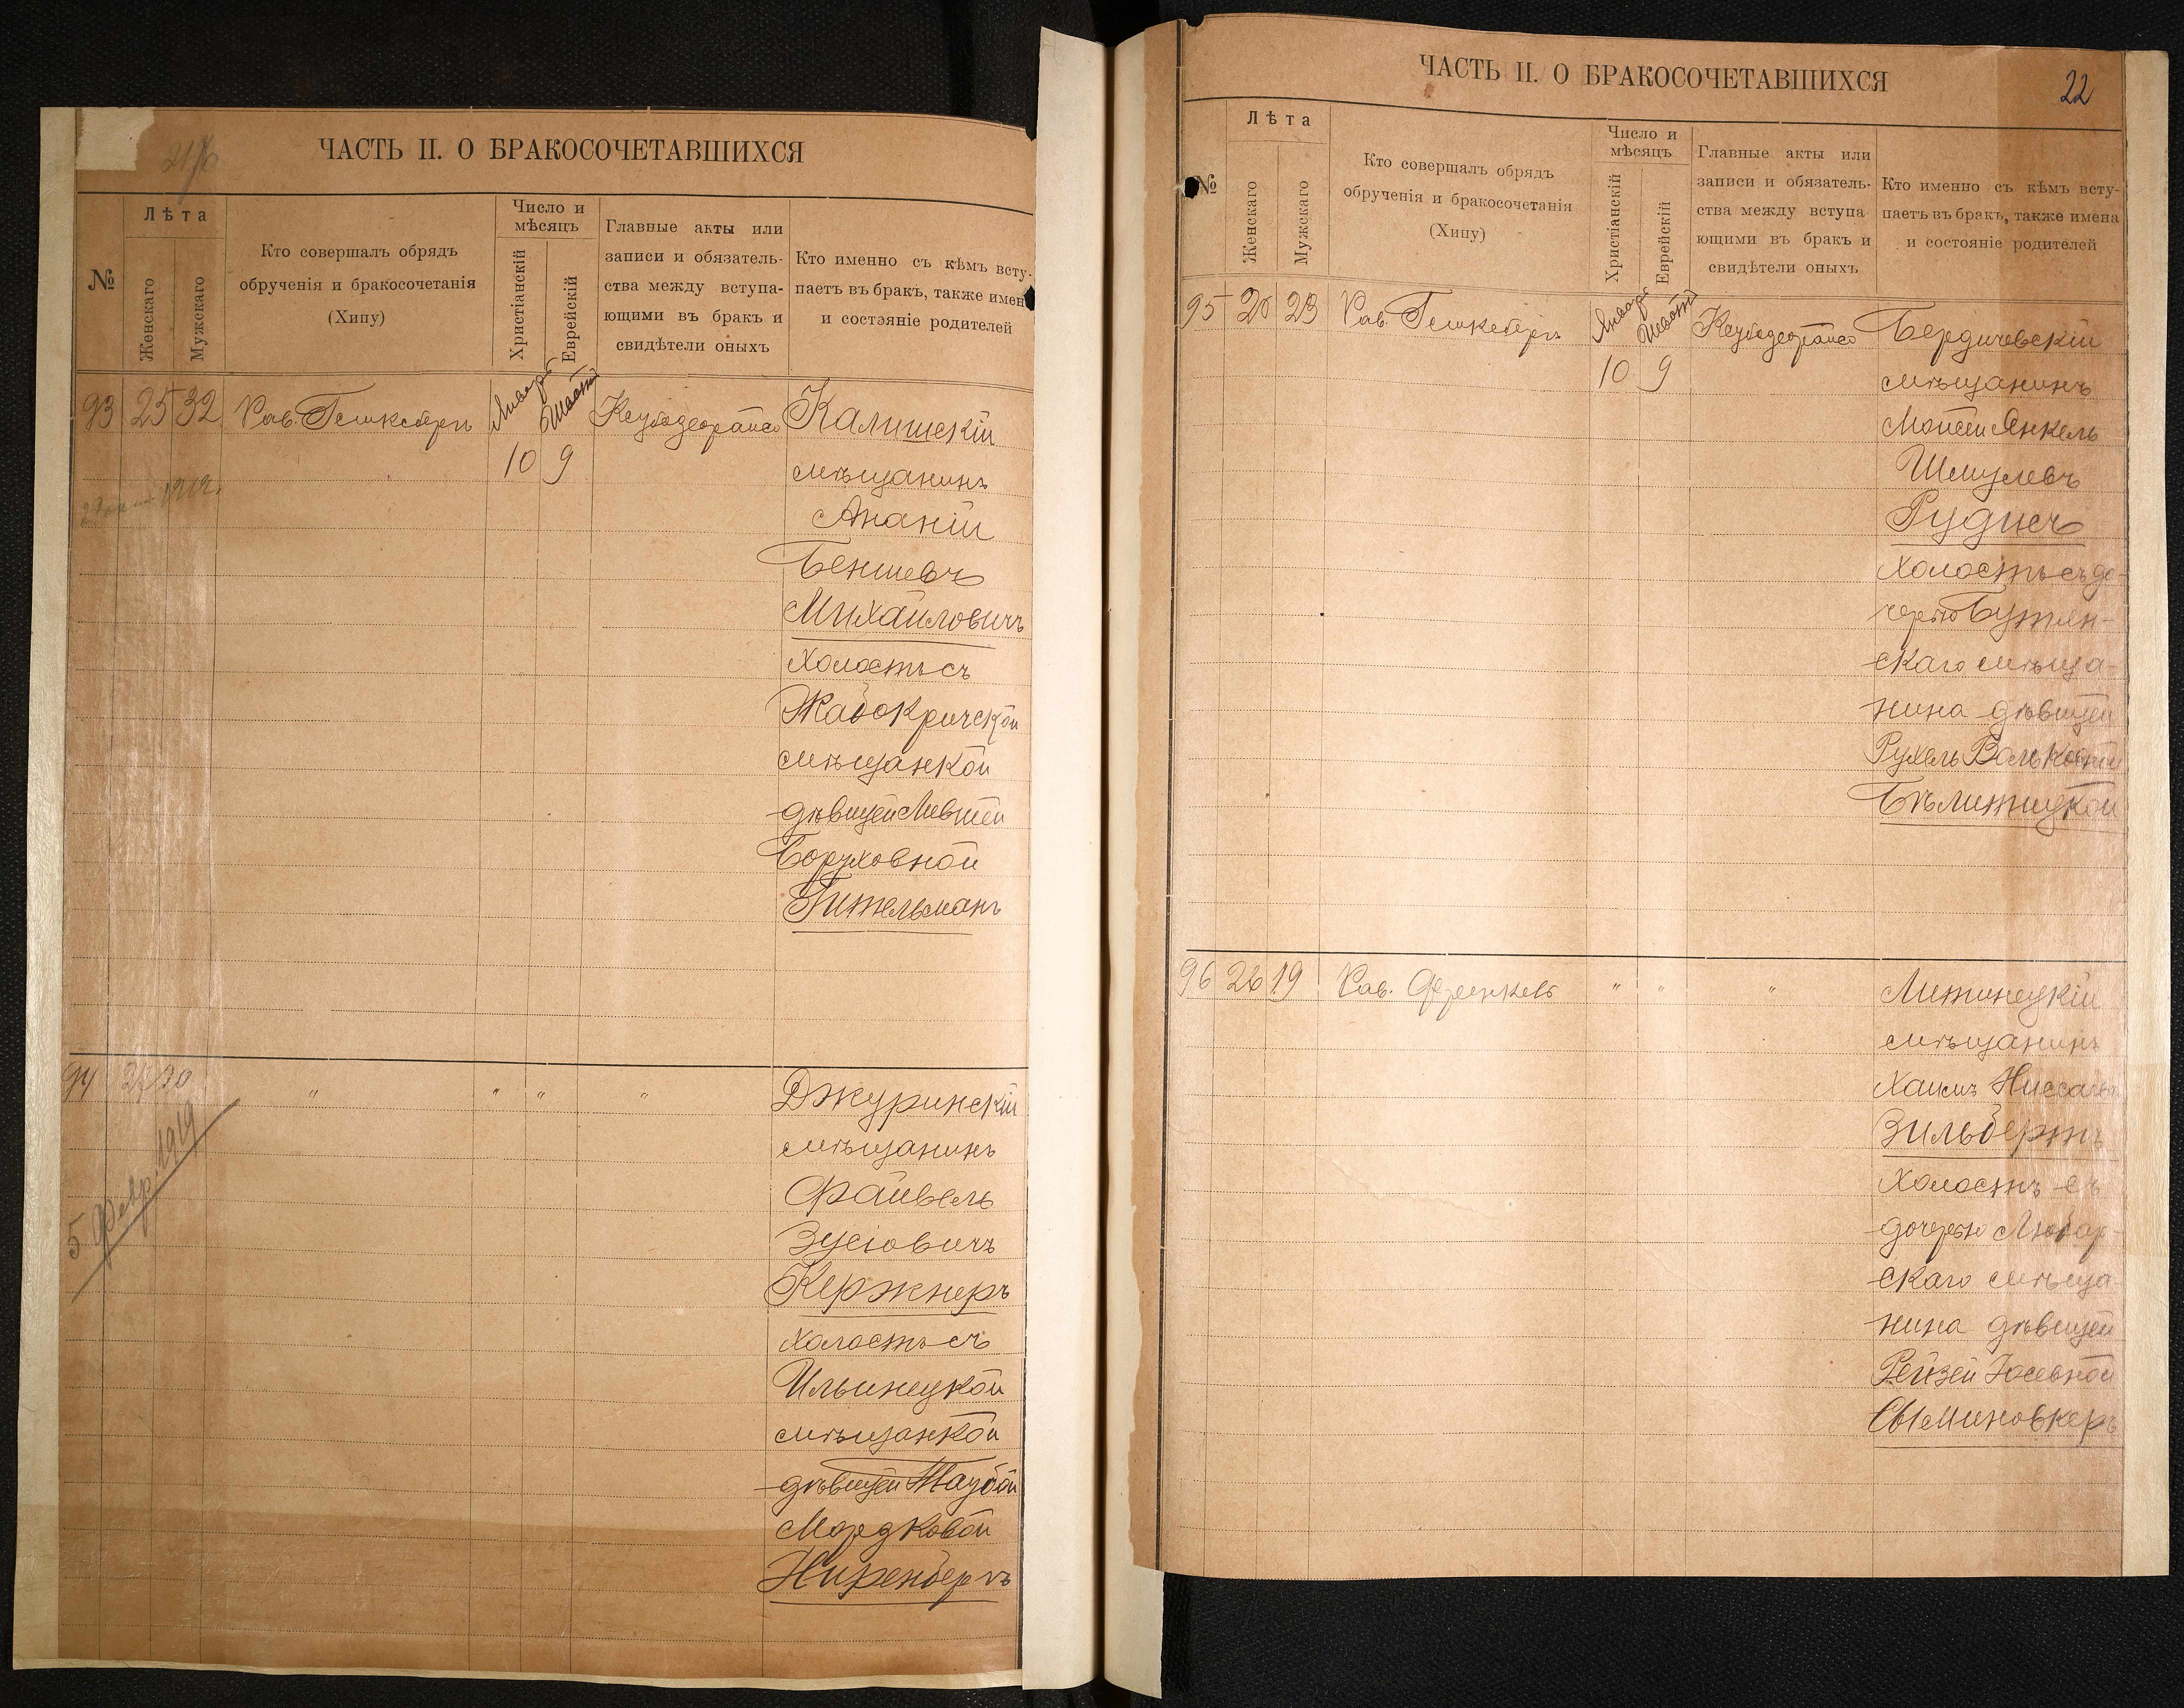 ЧАСТЬ II. О БРАКОСОЧЕТАВШИХСЯ
№
Лѣта
Женскаго
Мужскаго
Кто совершалъ обрядъ
обрученія и бракосочетанія
(Хипу)
Число и
мѣсяцъ
Христіанскій
Еврейскій
Главные акты или
записи и обязатель-
ства между вступа-
ющими въ бракъ и
свидѣтели оныхъ
Кто именно съ кѣмъ всту-
паетъ въ бракъ, также имен
и состояніе родителей
93 25 32 Рав.
10 9
Калишскій
мѣщанинъ
Ананій
Беншевъ
Михайловичъ
холостъ съ
Жабокричской
мѣщанкой
дѣвицей
Боруховной
Гительманъ
94 30 " " " "
5 Февр. 1919
Джуринскій
мѣщанинъ
Файвель
Зусіовичъ
Кержнеръ
холостъ съ
Ильинецкой
мѣщанкой
дѣвицей Таубой
Мордковой
Ниренбергъ
ЧАСТЬ II. О БРАКОСОЧЕТАВШИХСЯ
22
№
Лѣта
Женскаго
Мужскаго
Кто совершалъ обрядъ
обрученія и бракосочетанія
(Хипу)
Число и
мѣсяцъ
Христіанскій
Еврейскій
Главные акты или
записи и обязатель-
ства между вступа-
ющими въ бракъ и
свидѣтели оныхъ
Кто именно съ кѣмъ всту-
паетъ въ бракъ, также имена
и состояніе родителей
95 20 23 Рав.
10 9
Бердичевскій
мѣщанинъ
Мойсей Янкель
Шмулевъ
холостъ съ до-
черью
скаго мѣща-
нина дѣвицей
Рухель Вольковной
Бѣлитицкой
96 26 19 Рав. Френкель " " "
Литинецкій
мѣщанинъ
Хаимъ
Зильбертъ
холостъ съ
дочерью Любар-
скаго мѣща-
нина дѣвицей
Рейзей Іосевной